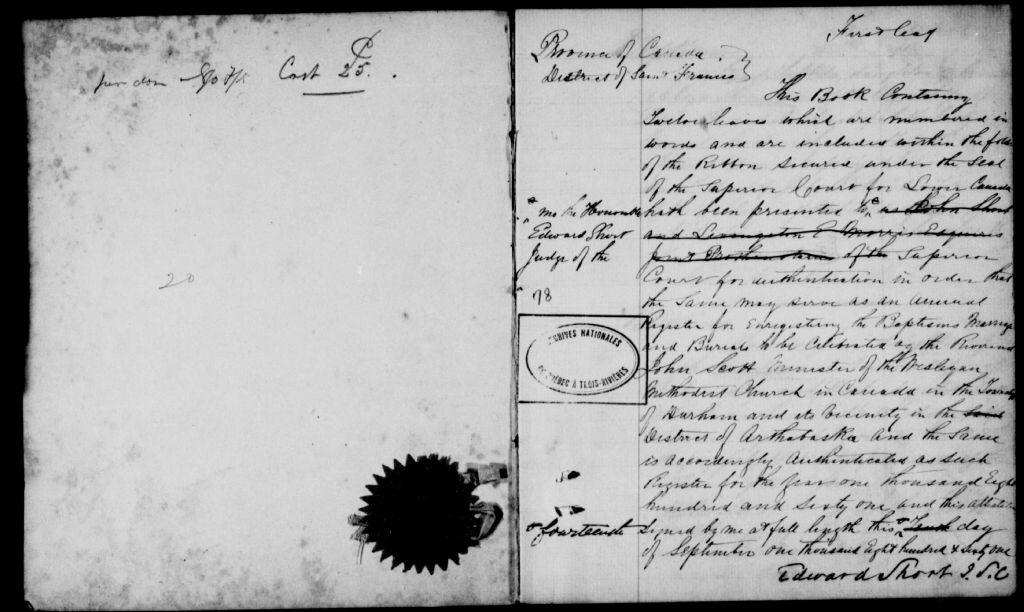 P
Cost 25.
20
First leaf
Province of Canada
District of Saint Francis
This Book Containing
Twelve leaves which are numbered in
words and are included within the fold
of the Ribbon secured under the Seal
of the Superior Court for Lower Canada
hath been presented to us John Short
and Livingston E Morris Esquires
Joint Prothonotaries of the Superior
Court for authentication in order that
the Same may serve as an annual
Register for Enregistering the Baptisms Marriages
and Burials to be Celebrated by the Reverend
John Scott Minister of the Wesleyan
Methodist Church in Canada in the Township
of Durham and its Vicinity in the said
District of Arthabaska and the Same
is accordingly Authenticated as Such
Register for the year one thousand Eight
hundred and Sixty one, and this attestation
Signed by me at full length this Tenth day
of September one thousand Eight hundred & Sixty one
Edward Short J.S.C
me the Honourable
Edward Short
Judge of the
78
ARCHIVES NATIONALES
DU QUÉBEC À TROIS-RIVIÈRES
fourteenth